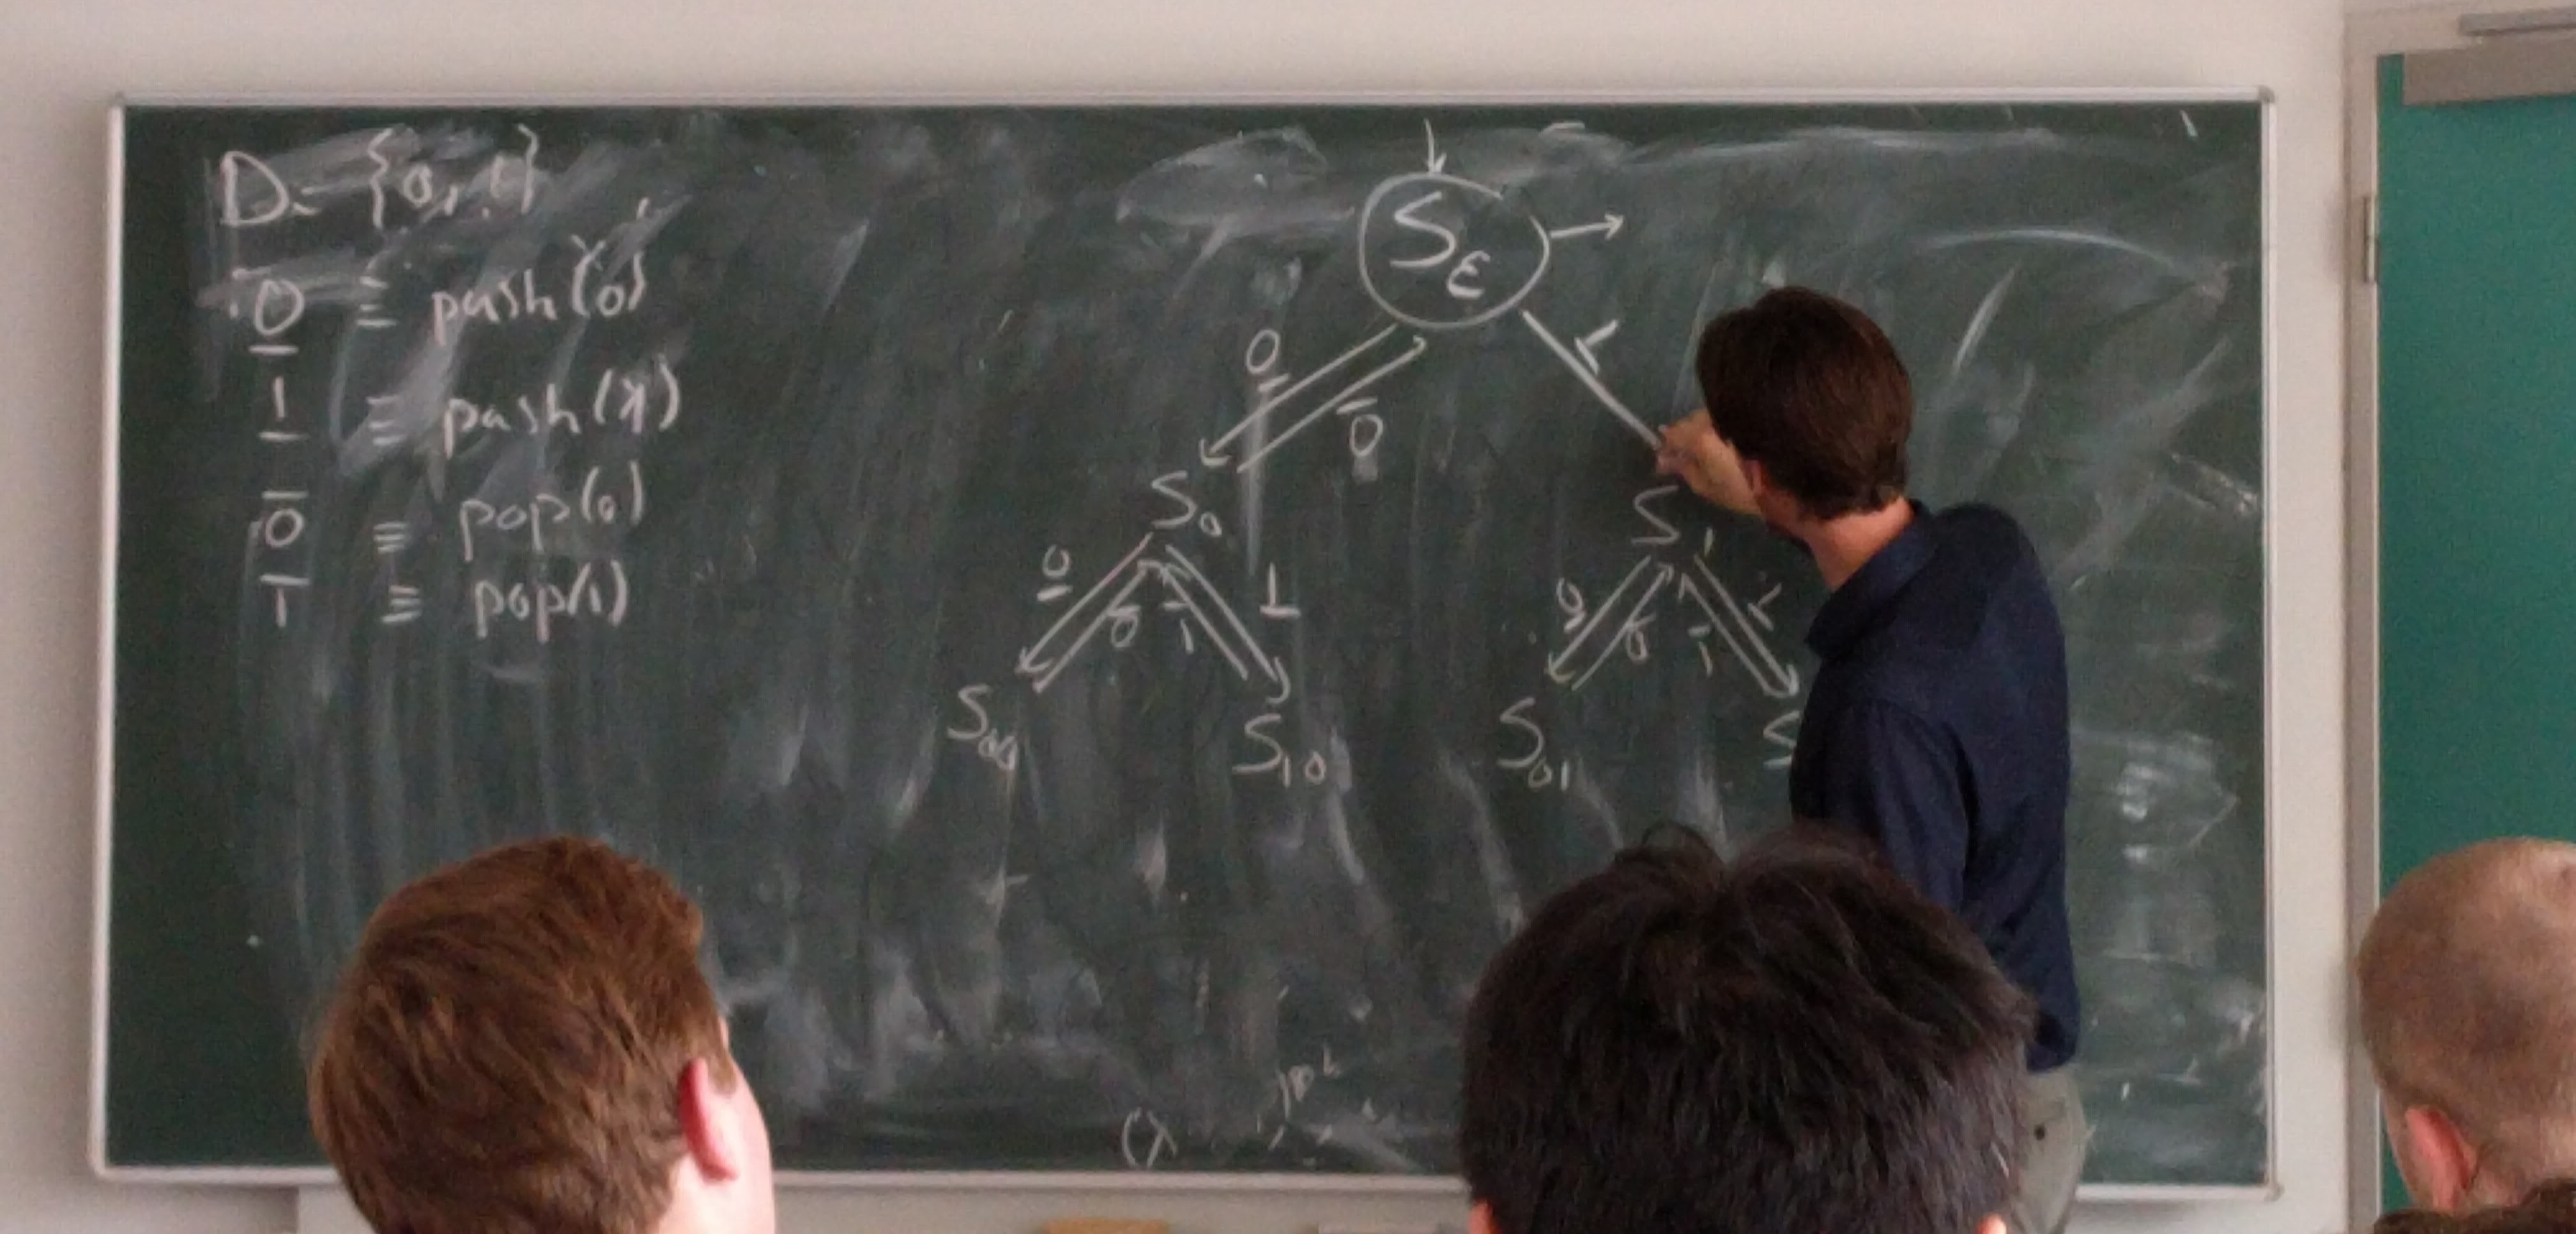 D = {0, 1}
0̲ ≡ push(0)
1̲ ≡ push(1)
0̅ ≡ pop(0)
1̅ ≡ pop(1)
S_ε
0̲ 0̅ 1̲
S_0 S_1
0̲ 0̅ 1̅ 1̲ 0̲ 0̅ 1̅ 1̲
S_00 S_10 S_01 S